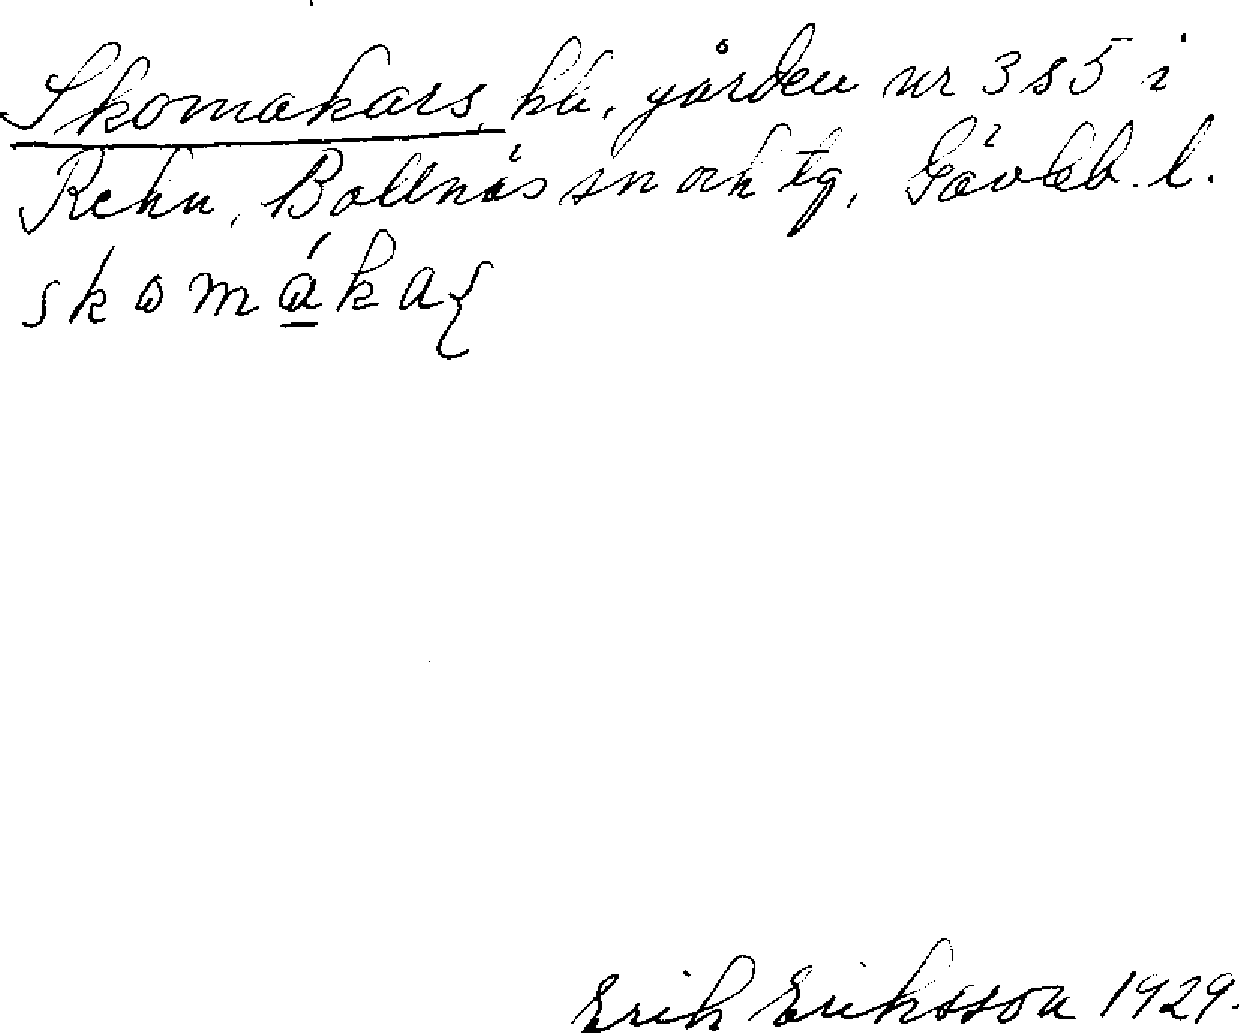 Skomakars, kb. gården nr 3 s 5 i
Rehn, Bollnäs sn och tg, Gävleb. l.
skomáka
Erik Eriksson 1929.